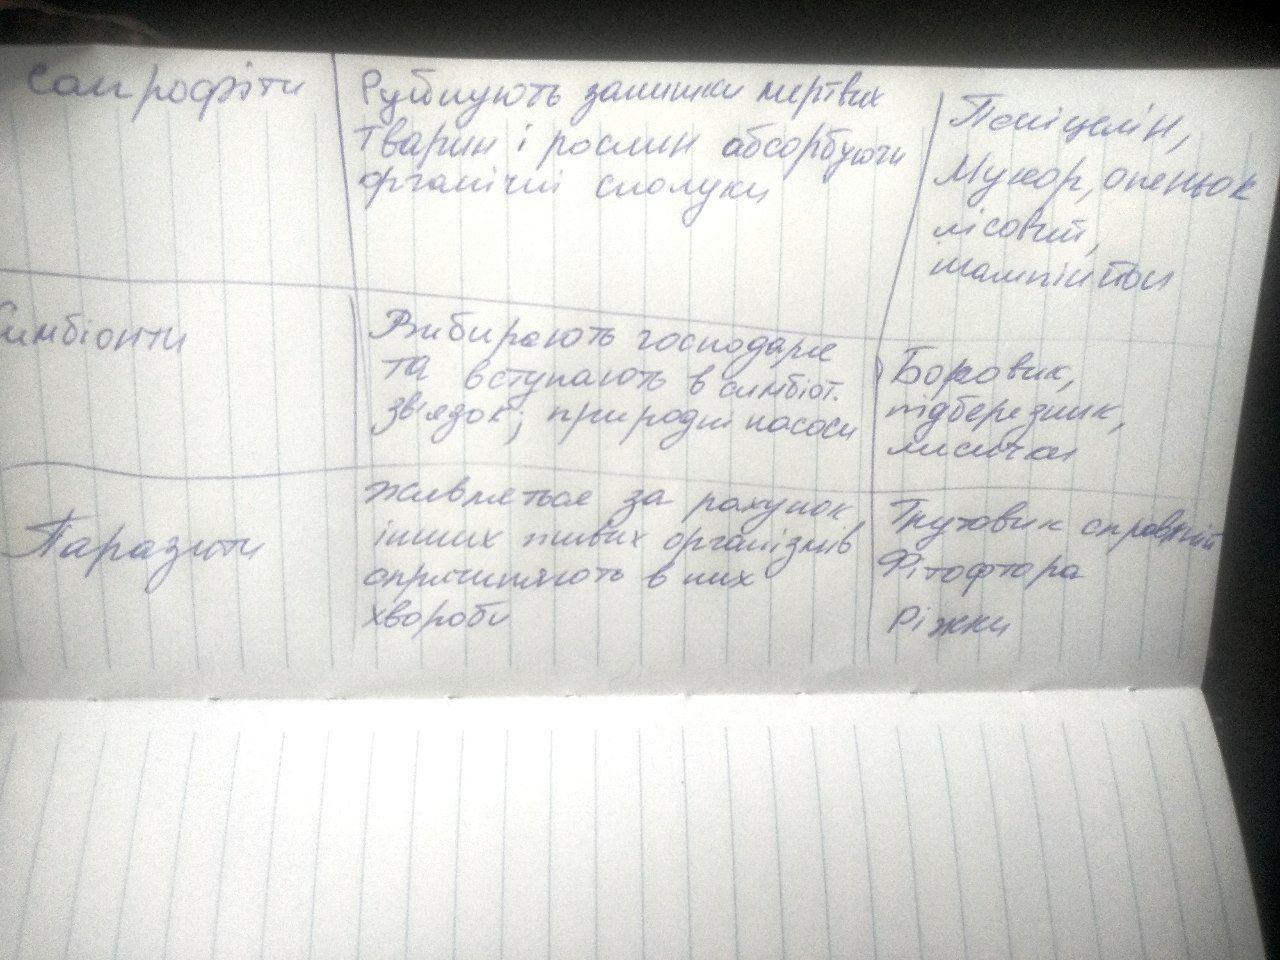 Сапрофіти
Руйнують залишки мертвих
тварин і рослин абсорбуючи
органічні сполуки
Пеніцилін,
Мукор, опеньок
лісовий,
шампіньйон
Симбіонти
Вибирають господаря
та вступають в симбіот.
зв'язок; природні насоси
Боровик,
підберезник,
лисички
Паразити
Живляться за рахунок
інших живих організмів
спричиняють в них
хвороби
Трутовик справжній
Фітофтора
Ріжки